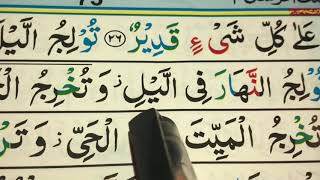 عَلٰی كُلِّ شَیْءٍ قَدِیْرٌ ﴿۲۶﴾ تُوْلِجُ الَّیْلَ
النَّهَارَ فِی الَّیْلِ ز وَ تُخْرِجُ
تُخْرِجُ الْمَیِّتَ الْحَیِّ ز وَ